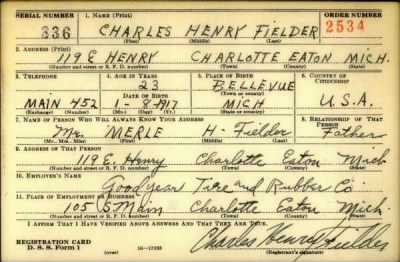 SERIAL NUMBER 1. NAME (Print) ORDER NUMBER
336 CHARLES HENRY FIELDER 2534
(First) (Middle) (Last)
2. ADDRESS (Print)
119 E HENRY CHARLOTTE EATON MICH.
(Number and street or R. F. D. number) (Town) (County) (State)
3. TELEPHONE 4. AGE IN YEARS 5. PLACE OF BIRTH 6. COUNTRY OF CITIZENSHIP
23 BELLEVUE
DATE OF BIRTH (Town or county)
MAIN 452 1-8-1917 MICH U.S.A.
(Exchange) (Number) (Mo.) (Day) (Yr.) (State or country)
7. NAME OF PERSON WHO WILL ALWAYS KNOW YOUR ADDRESS 8. RELATIONSHIP OF THAT PERSON
Mr. MERLE H. Fielder Father
(Mr., Mrs., Miss) (First) (Middle) (Last)
9. ADDRESS OF THAT PERSON
119 E. Henry Charlotte Eaton Mich
(Number and street or R. F. D. number) (Town) (County) (State)
10. EMPLOYER'S NAME
Goodyear Tire and Rubber Co.
11. PLACE OF EMPLOYMENT OR BUSINESS
105 S Main Charlotte Eaton Mich.
(Number and street or R. F. D. number) (Town) (County) (State)
I AFFIRM THAT I HAVE VERIFIED ABOVE ANSWERS AND THAT THEY ARE TRUE.
REGISTRATION CARD
D. S. S. Form 1 (over) 16-17105 Charles Henry Fielder
(Registrant's signature)